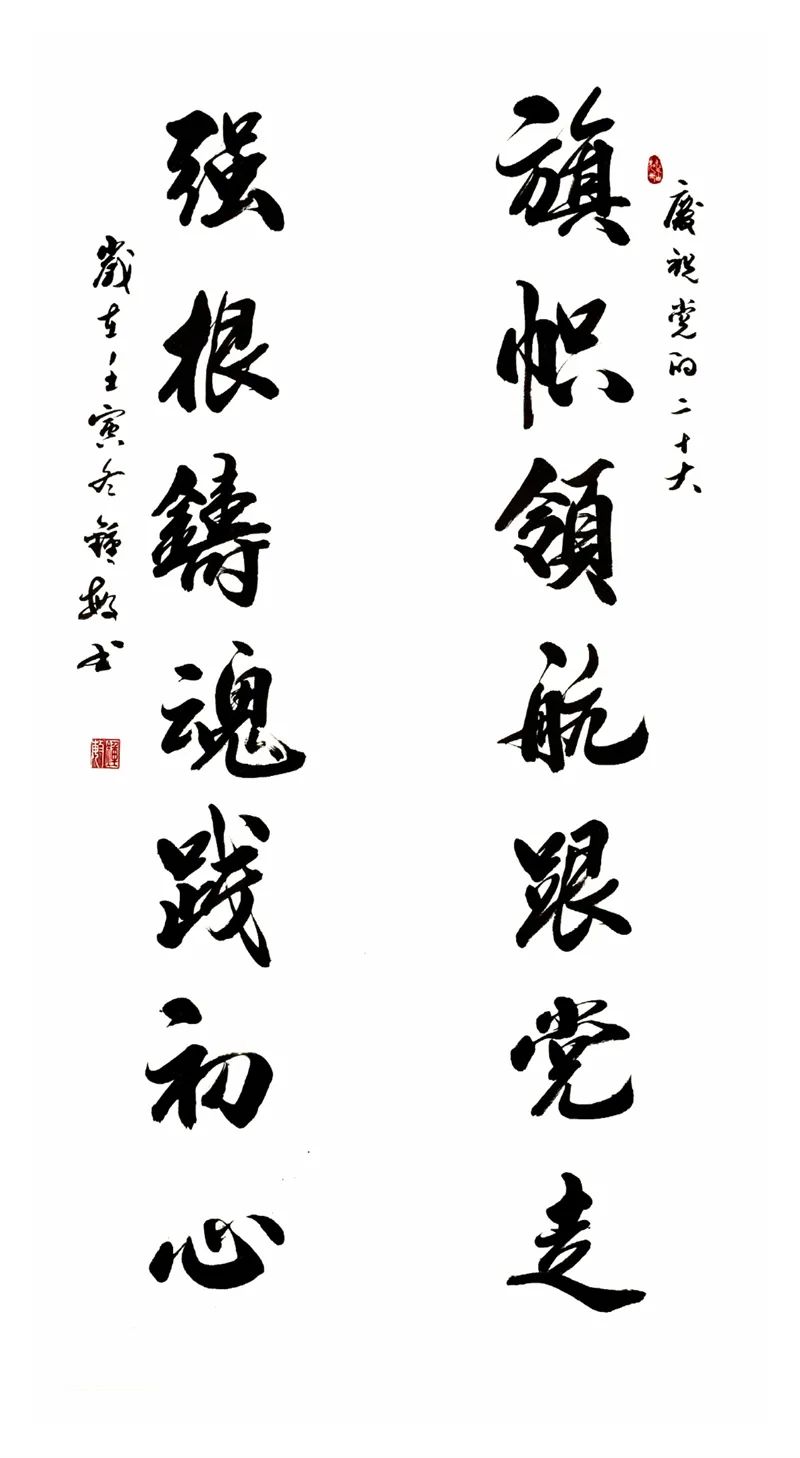 慶祝党的二十大
旗帜領航跟党走
强根鑄魂践初心
歲在壬寅冬 敏书